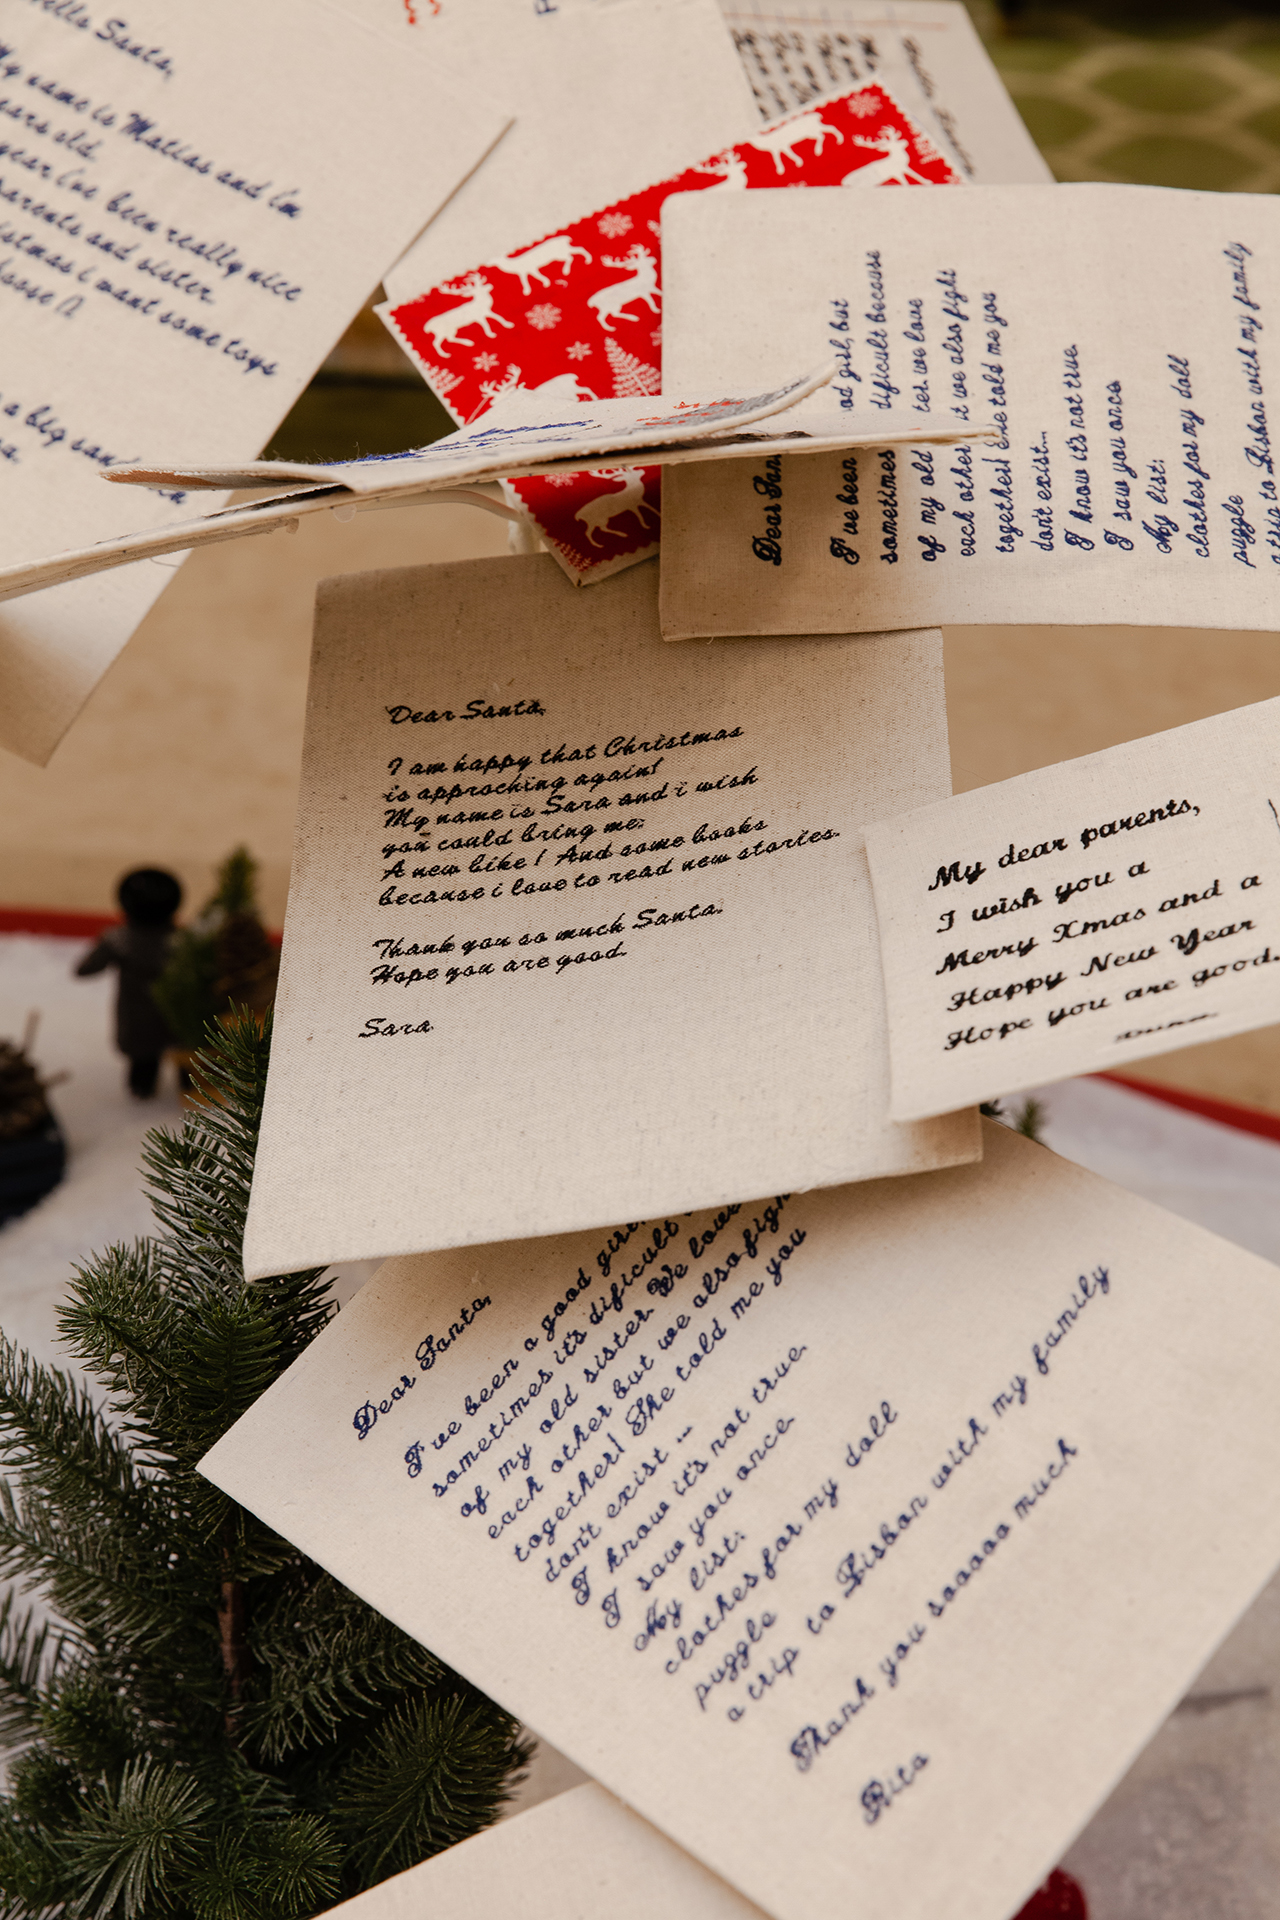 Hello Santa,
My name is Matias and i'm
years old.
year i've been really nice
parents and sister.
i want some toys
a big
Dear
I've been
od girl, but
sometimes
dificult because
of my old
we love
each other
it we also fight
together! She told me you
don't exist...
I know it's not true.
I saw you once
My list:
clothes for my doll
puggle
a trip to Lisbon with my family
Dear Santa,
I am happy that Christmas
is approching again!
My name is Sara and i wish
you could bring me:
A new bike! And some books
because i love to read new stories.
Thank you so much Santa.
Hope you are good.
Sara
My dear parents,
I wish you a
Merry Xmas and a
Happy New Year
Hope you are good.
Dear Santa,
I've been a good girl,
sometimes it's dificult
of my old sister. We love
each other but we also figh
together! She told me you
don't exist ...
I know it's not true.
I saw you once.
My list:
clothes for my doll
puggle
a trip to Lisbon with my family
Thank you sooooo much
Rita